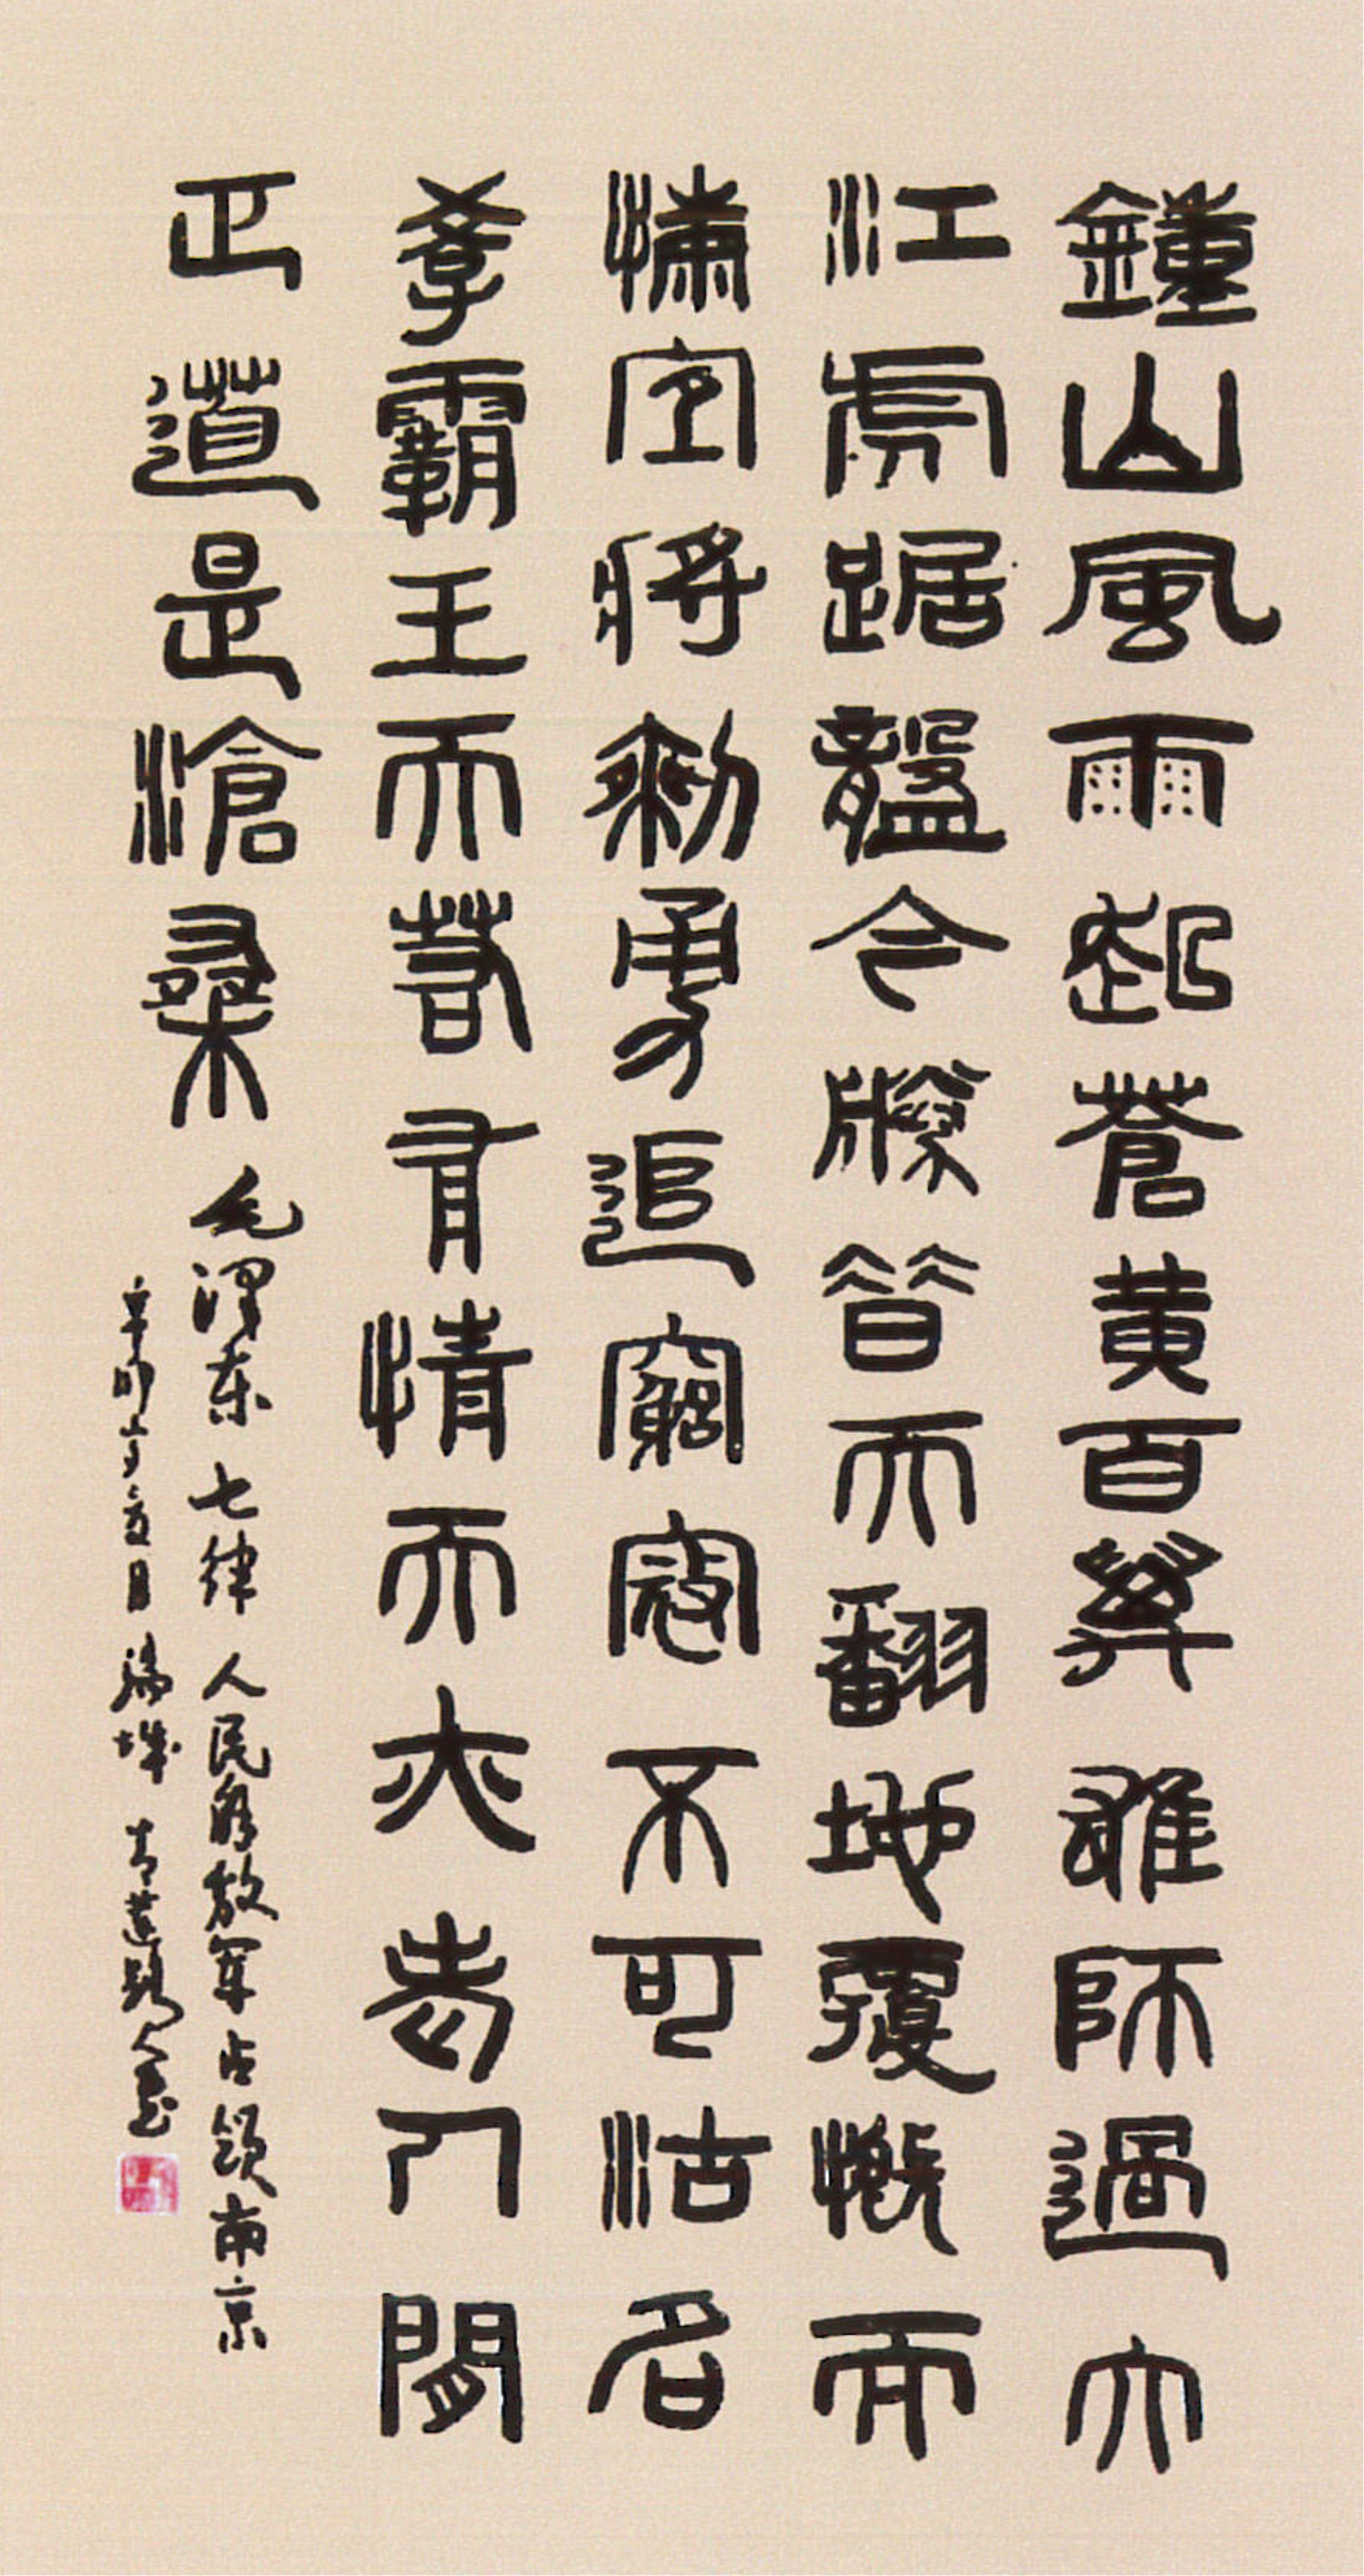 鐘山風雨起蒼黃百萬雄師過大
江虎踞龍盤今勝昔天翻地覆慨而
慷宜將剩勇追窮寇不可沽名
學霸王天若有情天亦老人間
正道是滄桑
毛澤东 七律 人民解放军占领南京
辛卯 月